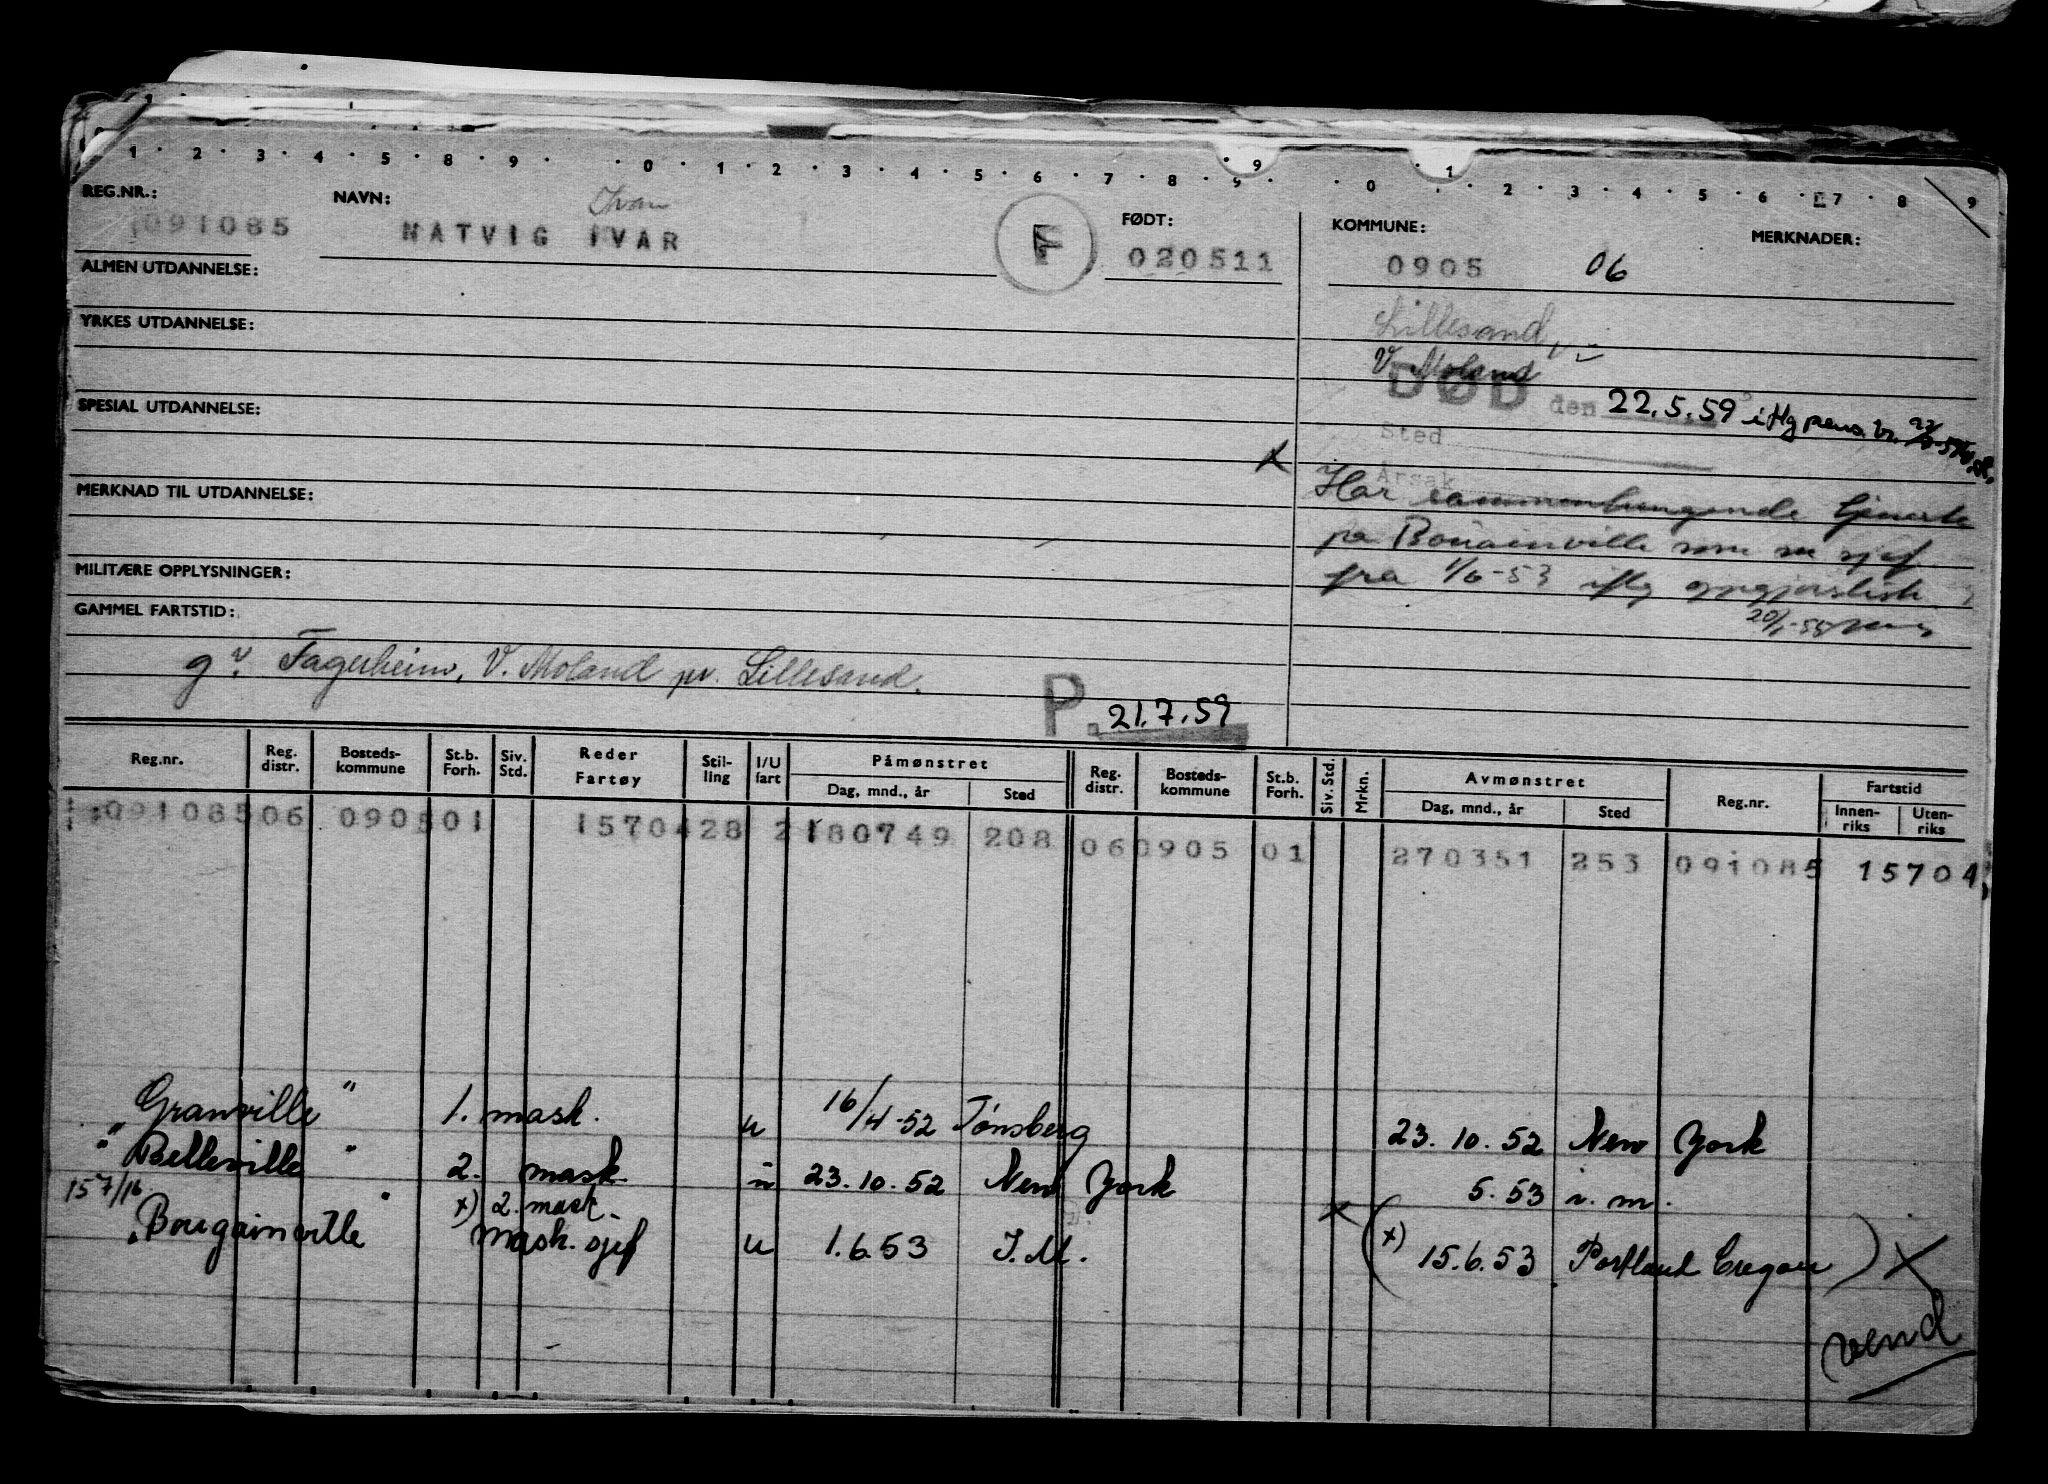 1 · 2 · 3 · 4 · 5 · 8 · 9 · · 0 · 1 · 2 · 3 · 4 · 5 · 6 · 7 · 8 · 9 · · 0 · 1 · 2 · 3 · 4 · 5 · 6 · 7 · 8 · 9
REG.NR.:
091085
NAVN:
Ivar
NATVIG IVAR
F
FØDT:
020511
KOMMUNE:
0905 06
MERKNADER:
ALMEN UTDANNELSE:
YRKES UTDANNELSE:
SPESIAL UTDANNELSE:
MERKNAD TIL UTDANNELSE:
MILITÆRE OPPLYSNINGER:
GAMMEL FARTSTID:
Lillesand
V. Moland
DØD den 22.5.59 iflg pens.
Sted
Årsak
x Har sammenhengende tjeneste
på Bougainville som m sjef
fra 1/6-53 iflg
g. Fagerheim, V. Moland pr. Lillesand.
P. 21.7.59
Reg.nr. Reg. distr. Bosteds-kommune St.b. Forh. Siv. Std. Reder Fartøy Stil-ling I/U fart Påmønstret Dag, mnd., år Sted Reg. distr. Bosteds-kommune St.b. Forh. Siv. Std. Mrkn. Avmønstret Dag, mnd., år Sted Reg.nr. Fartstid Innen-riks Uten-riks
09108506 090501 1570428 2180749 208 060905 01 270351 253 091085 15704
Granville " 1. mask. u 16/4-52 Tønsberg 23.10.52 New York
" Belleville " 2. mask. u 23.10.52 New York 5.53 i.m.
157/16 x) 2. mask.
Bougainville mask. sjef u 1.6.53 I.M. x (x) 15.6.53 Portland Oregon) X
vend